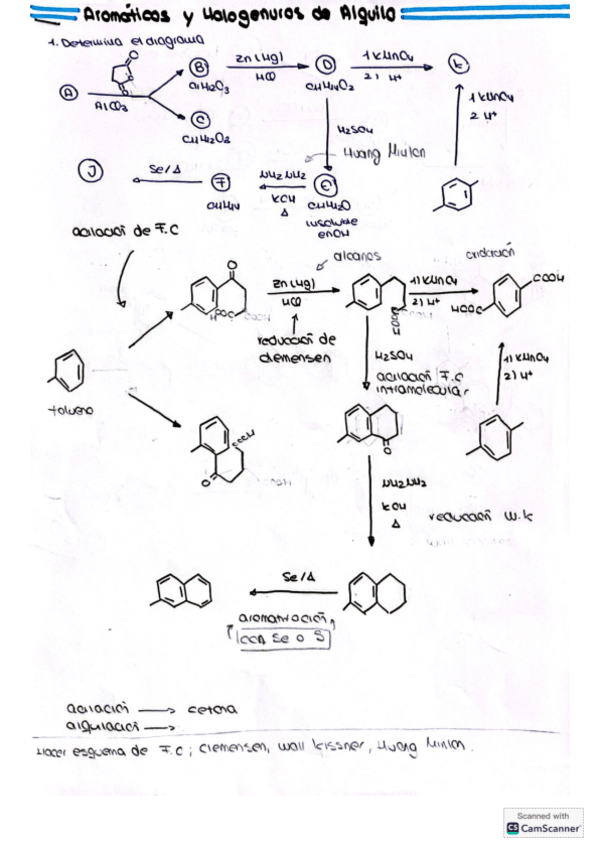 Aromáticos y Halogenuros de Alquilo
1. Determina el diagrama
A
AlCl3
B
C11H12O3
C
C11H12O3
Zn(Hg)
HCl
D
C11H14O2
1 KMnO4
2) H+
K
1 KMnO4
2 H+
H2SO4
Huang Minlon
E
C11H12O
insoluble
en OH
NH2NH2
KOH
Δ
F
C11H14
Se/Δ
J
acilación de F.C
alcanos
oxidación
O
HOOC
Zn(Hg)
HCl
reducción de
clemensen
COOH
1) KMnO4
2) H+
COOH
HOOC
H2SO4
acilación F.C
intramolecular
1) KMnO4
2) H+
tolueno
COOH
O
O
NH2NH2
KOH
Δ
reducción W.K
Se/Δ
aromatización
con Se o S
acilación → cetona
alquilación →
Hacer esquema de F.C; Clemensen, Wolf Kissner, Huang Minlon.
Scanned with
CS CamScanner